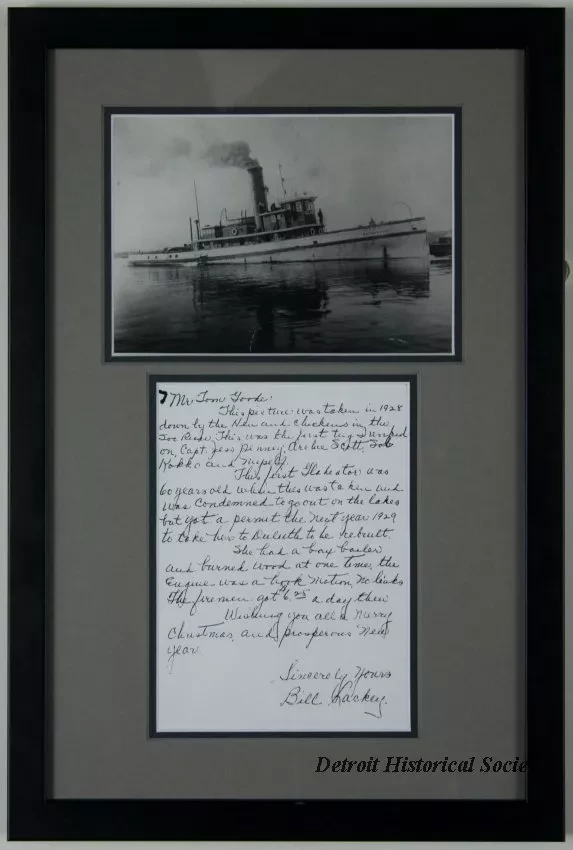 Mr Tom Goode:
This picture was taken in 1928
down by the Hen and Chickens in the
Soo River. This was the first tug I worked
on, Capt. Jess Penney, Archie Scott, Joe
Kokko and myself.
The first Gladiator was
60 years old when this was taken and
was condemned to go out on the lakes
but got a permit the next year 1929
to take her to Duluth to be rebuilt.
She had a box boiler
and burned wood at one time, the
Engine was a hook motion, no links
The firemen got $6.25 a day then
Wishing you all a Merry
Christmas, and prosperous New
Year
Sincerely Yours
Bill Lackey.
Detroit Historical Socie